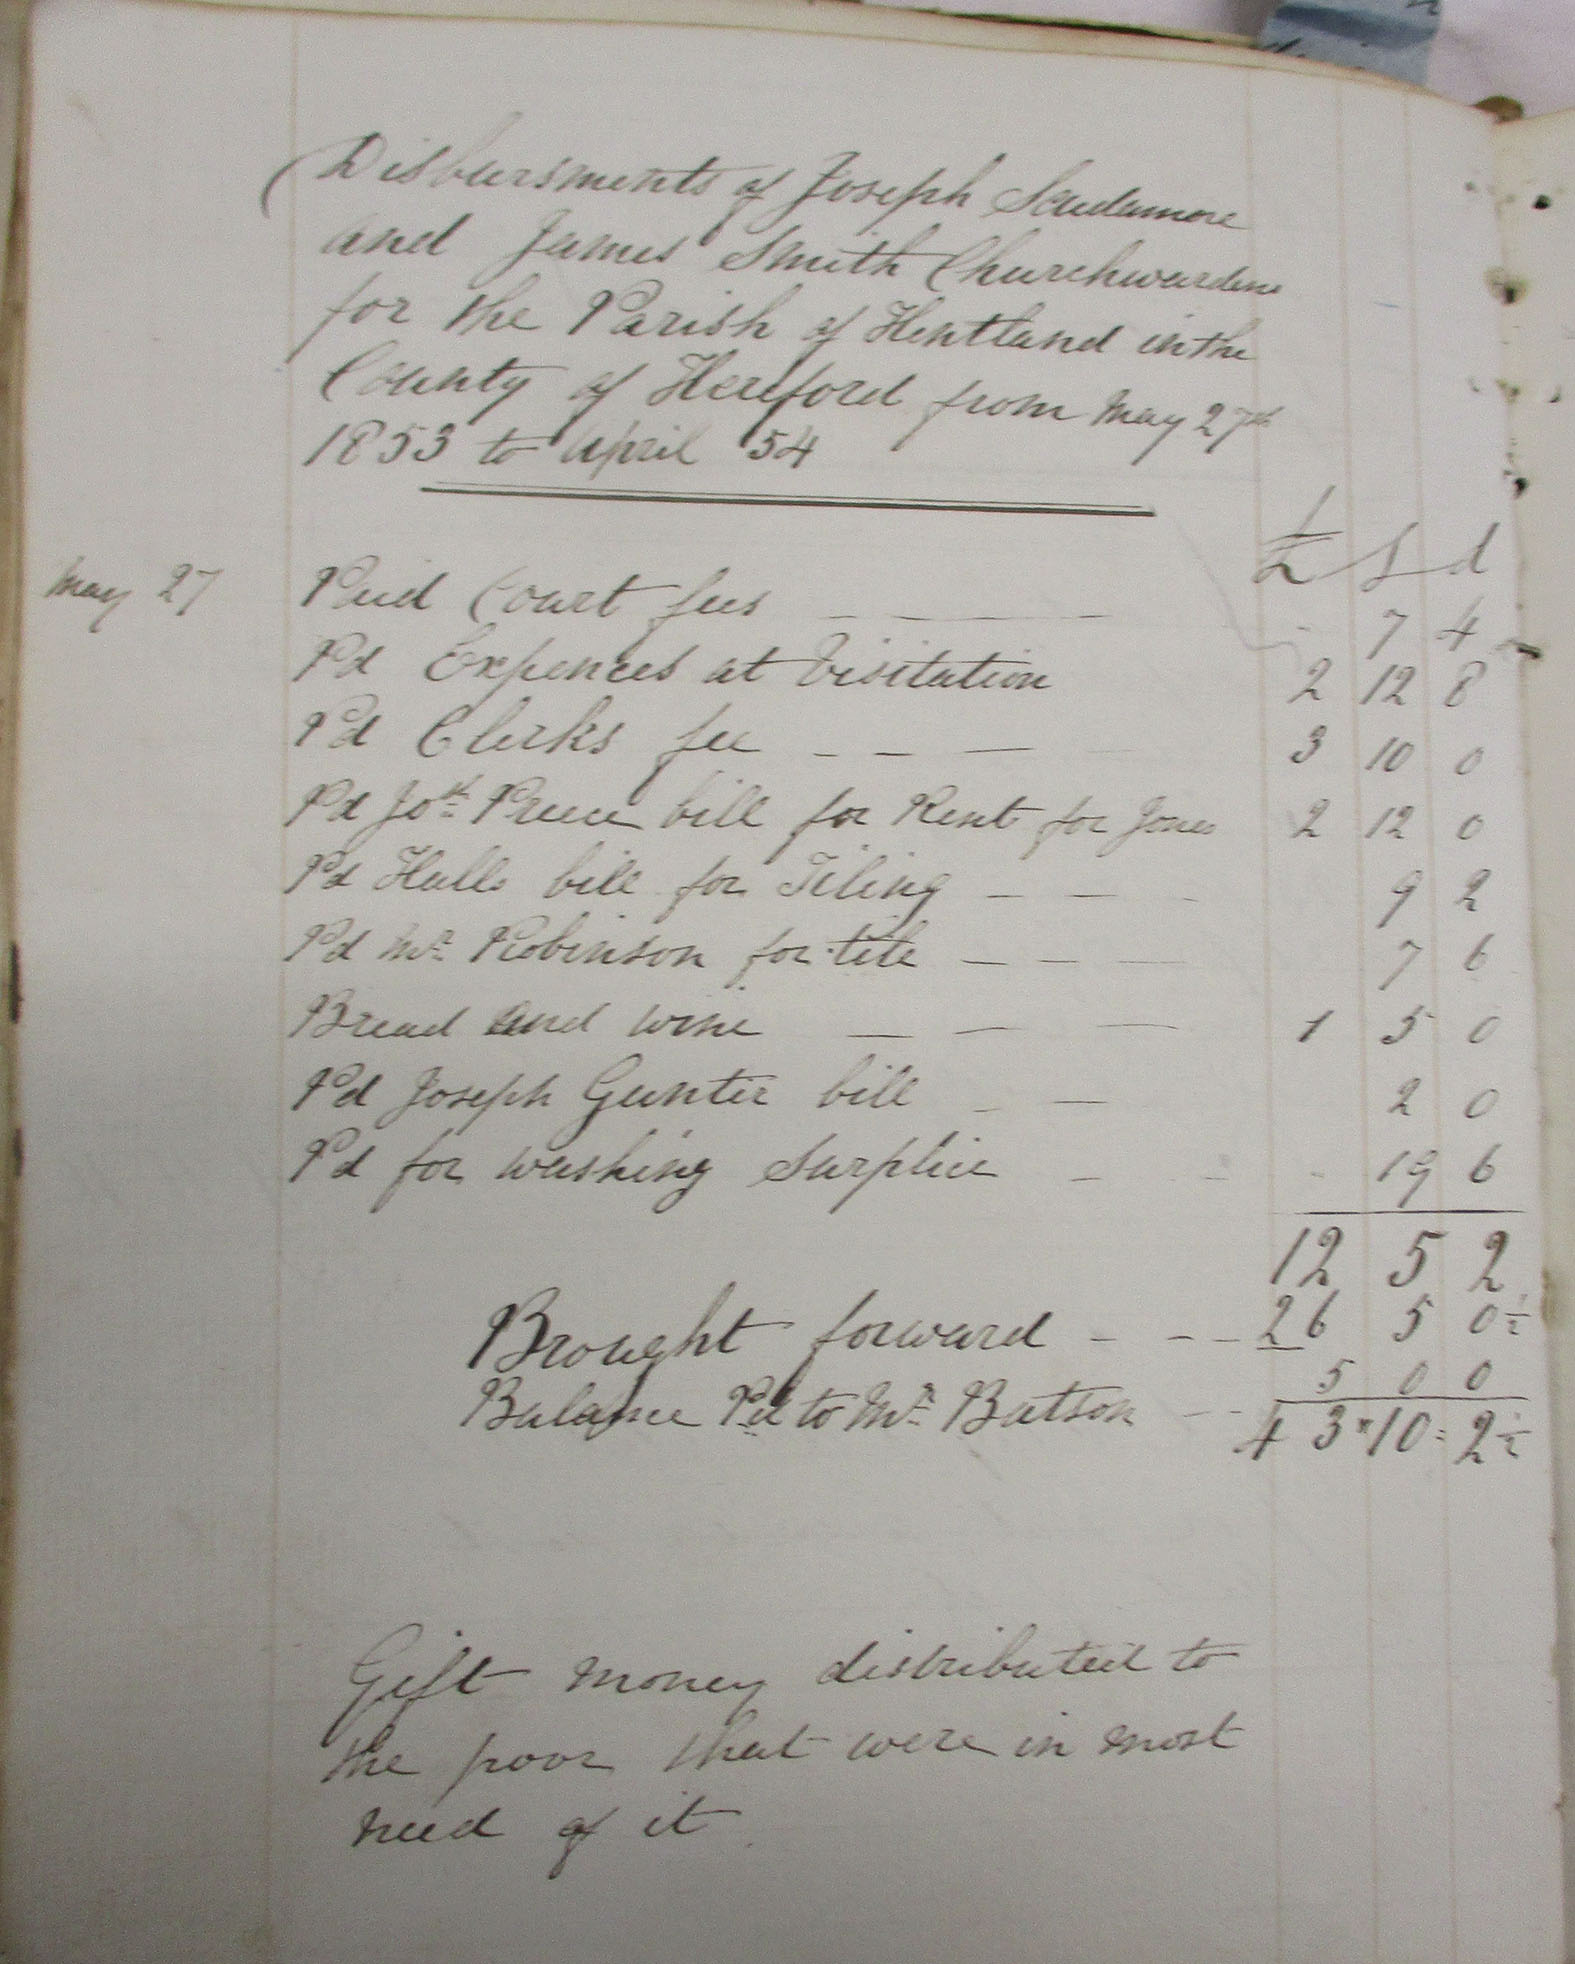 Disbursments of Joseph Scudamore
and James Smith Churchwardens
for the Parish of Hentland in the
County of Hereford from May 27th
1853 to April 54
£ s d
May 27 Paid Court fees 7 4
Pd Expences at Visitation 2 12 8
Pd Clerks fee 3 10 0
Pd Josh Preece bill for Rent for Jones 2 12 0
Pd Halls bill for Tiling 9 2
Pd Mr Robinson for tile 7 6
Bread and wine 1 5 0
Pd Joseph Gunter bill 2 0
Pd for washing Surplice 19 6
12 5 2
Brought forward 26 5 0½
Balance Pd to Mr Batson 5 0 0
43 10 2½
Gift money distributed to
the poor that were in most
need of it